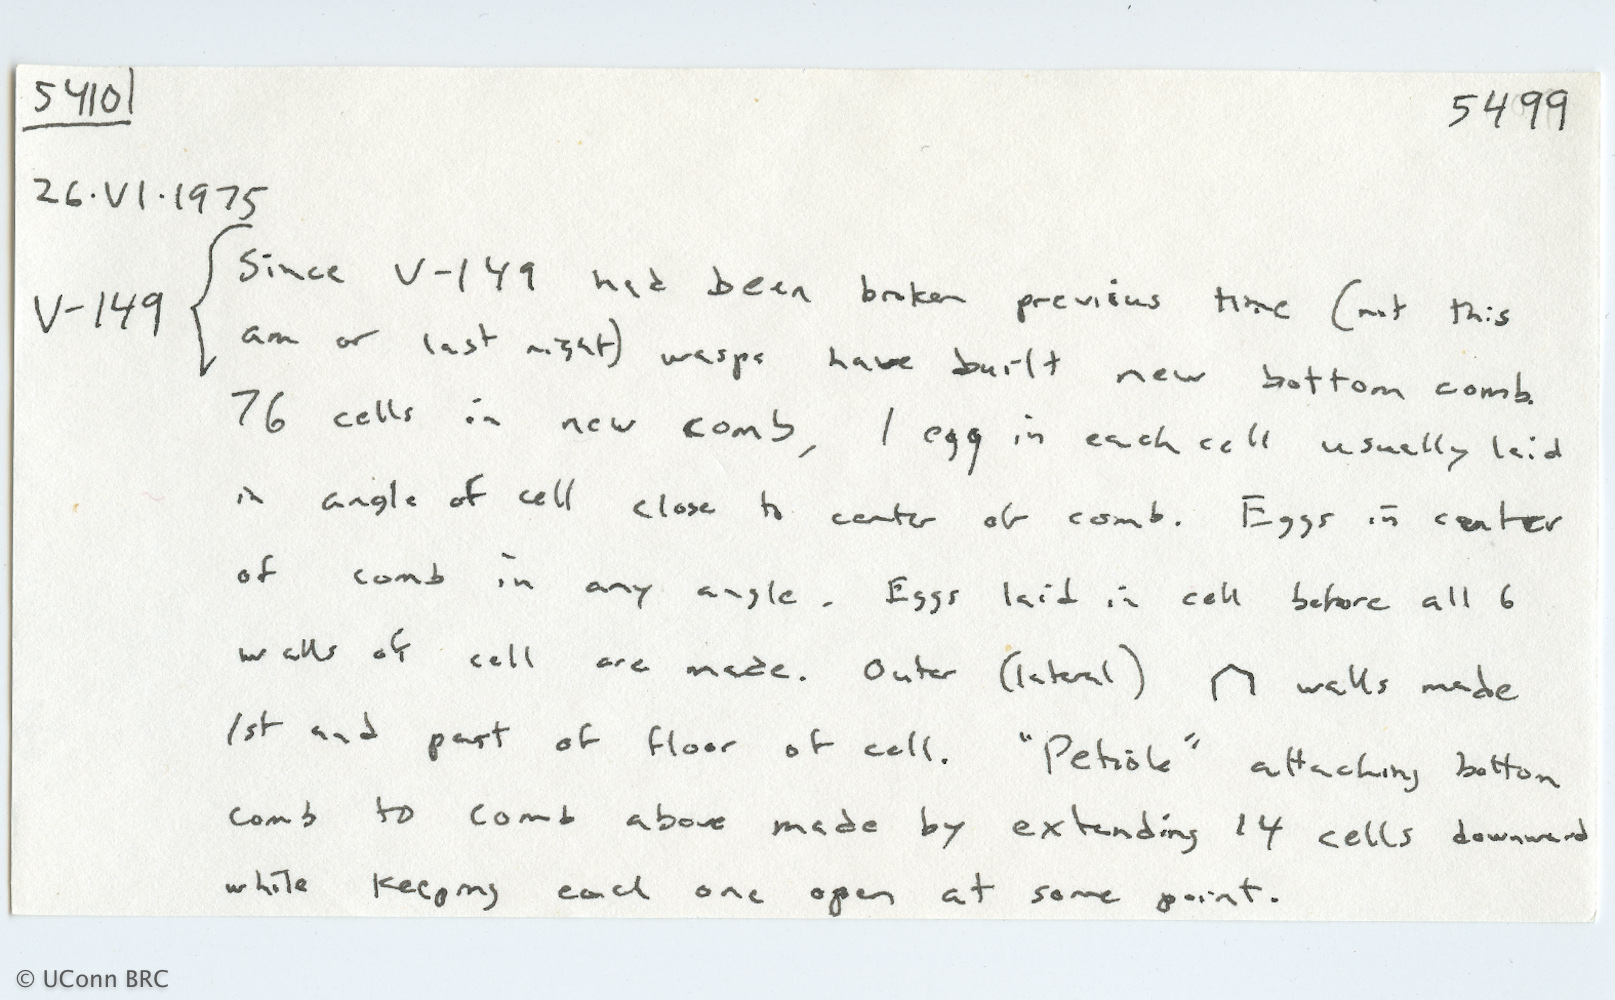 54101
5499
26.VI.1975
V-149 { Since V-149 had been broken previous time (not this
am or last night) wasps have built new bottom comb.
76 cells in new comb, 1 egg in each cell usually laid
in angle of cell close to center of comb. Eggs in center
of comb in any angle. Eggs laid in cell before all 6
walls of cell are made. Outer (lateral) walls made
1st and part of floor of cell. "Petiole" attaching bottom
comb to comb above made by extending 14 cells downward
while keeping each one open at some point.
© UConn BRC